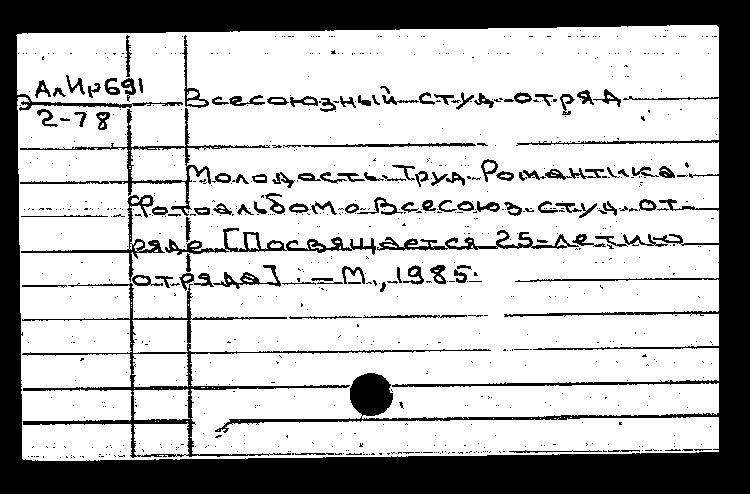 АлИр691
2-78
Всесоюзный студ. отряд.
Молодость. Труд. Романтика:
Фотоальбом о Всесоюз. студ. от-
ряде [Посвящается 25-летию
отряда]. – М., 1985.